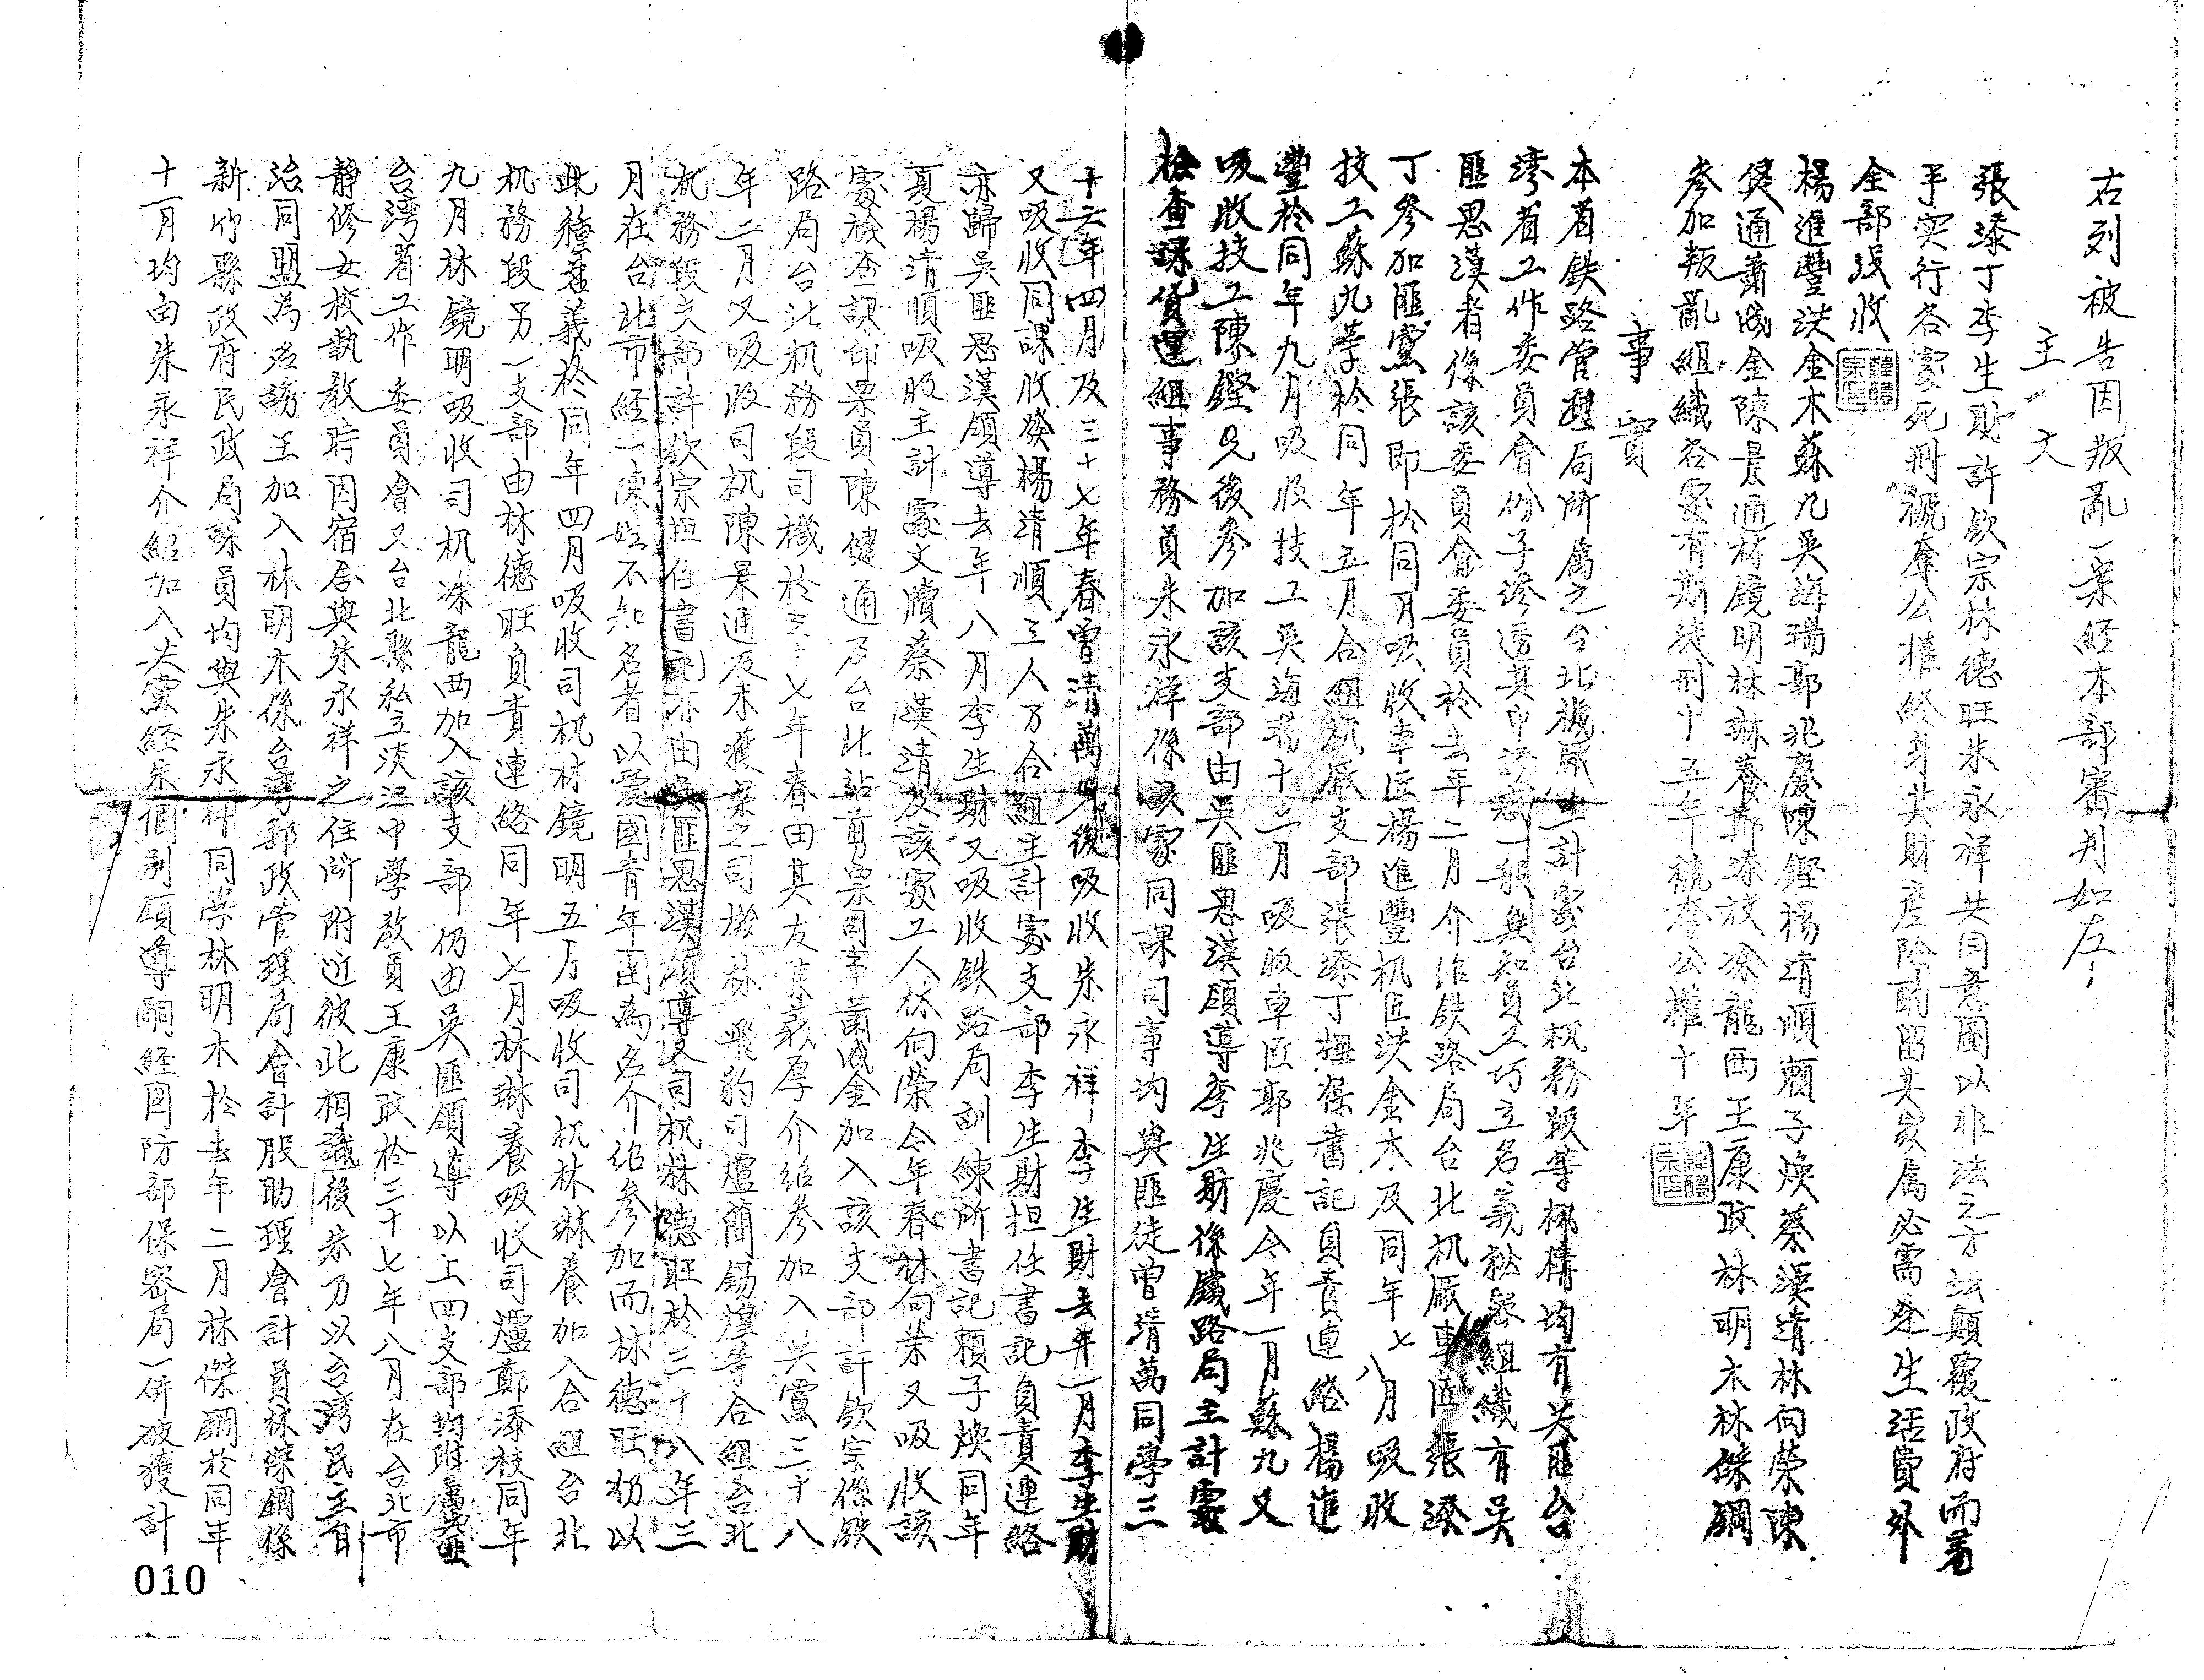 右列被告因叛亂一案經本部審判如左：
主文
張添丁李生財許欽宗林德旺朱永祥共同意圖以非法之方法顛覆政府而着
手实行各處死刑褫奪公權終身其財產除酌留其家属必需之生活費外
全部沒收
楊進豐洪金木蘇九吳海瑞郭兆慶陳鏗楊清順賴子煥蔡漢清林向荣陳
健通蕭成金陳景通林鏡明林琳養鄭添枝凃龍西王康旼林明木林傑鋼
参加叛亂組織各處有期徒刑十五年褫奪公權十年
事實
本省鉄路管理局所属之台北機厰主計處台北机務段等机構均有共匪台
湾省工作委員會份子滲透其中誘惑一般無知員工巧立名義秘密組織有吳
匪思漢者係該委員會委員於去年二月介绍鉄路局台北机厰車匠張添
丁参加匪黨張即於同月吸收車匠楊進豐机匠洪金木及同年七八月吸收
技工蘇九等於同年五月合組机厰支部張添丁担任書記負責連絡楊進
豐於同年九月吸收技工吳海瑞十二月吸收車匠郭兆慶今年一月蘇九又
吸收技工陳鏗先後参加該支部由吳匪思漢領導李生財係鐵路局主計處
檢查課貨運組事務員朱永祥係該處同課司事均與匪徒曾清萬同學三
十六年四月及三十七年春曾清萬先後吸收朱永祥李生財去年一月李生財
又吸收同課收發楊清順三人乃合組主計處支部李生財担任書記負責連絡
亦歸吳匪思漢領導去年八月李生財又吸收鉄路局訓練所書記賴子煥同年
夏楊清順吸收主計處文牘蔡漢清及該處工人林向榮今年春林向荣又吸收該
處檢查課印票員陳健通及台北站剪票司事蕭成金加入該支部許欽宗係鉄
路局台北机務段司機於三十七年春由其友吳義厚介绍参加入共黨三十八
年二月又吸收司机陳景通及未獲案之司機林飛豹司爐簡錫煌等合組台北
机務段支部許欽宗担任書記亦由吳匪思漢領導又司机林德旺於三十八年三
月在台北市經一陳姓不知名者以愛國青年團為名介绍参加而林德旺扔以
此種名義於同年四月吸收司机林鏡明五月吸收司机林琳養加入合組台北
机務段另一支部由林德旺負責連絡同年七月林琳養吸收司爐鄭添枝同年
九月林鏡明吸收司机凃龍西加入該支部仍由吳匪領導以上四支部均附屬共匪
台湾省工作委員會又台北縣私立淡江中學教員王康旼於三十七年八月在台北市
靜修女校執教時因宿舍與朱永祥之住所附近彼此相識後朱乃以台湾民主自
治同盟為名誘王加入林明木係台灣郵政管理局會計股助理會計員林傑鋼係
新竹縣政府民政局課員均與朱永祥同学林明木於去年二月林傑鋼於同年
十一月均由朱永祥介紹加入共黨經朱個別領導嗣經國防部保密局一併破獲計
010